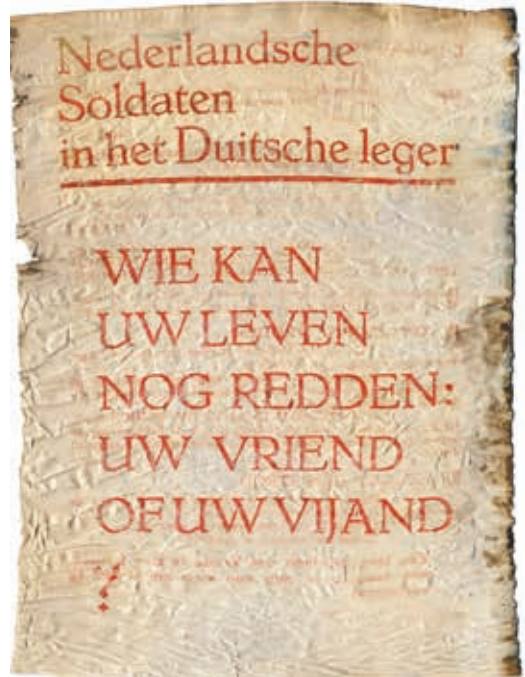 Nederlandsche
Soldaten
in het Duitsche leger
WIE KAN
UW LEVEN
NOG REDDEN:
UW VRIEND
OF UW VIJAND
?